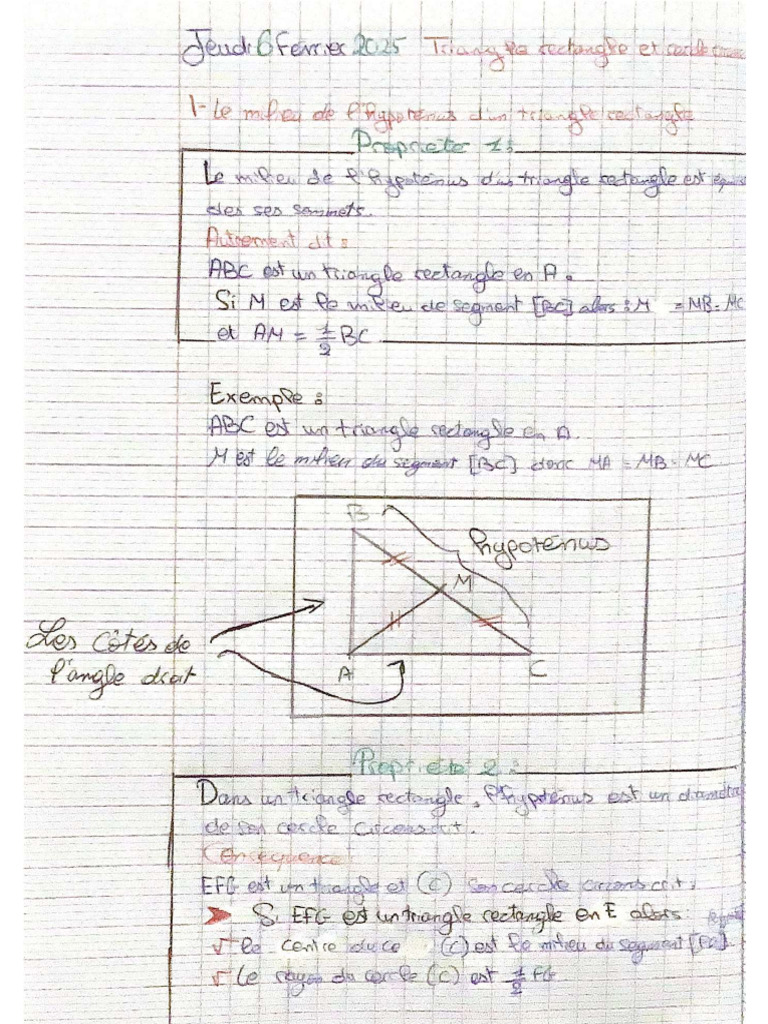 Jeudi 6 Février 2025 Triangle rectangle et cercle
1- Le milieu de l'hypoténus d'un triangle rectangle
Propriete 1:
Le milieu de l'hypoténus d'un triangle rectangle est
des ses sommets.
Autrement dit :
ABC est un triangle rectangle en A.
Si M est le milieu de segment [BC] alors : M = MB = MC
et AM = 1/2 BC.
Exemple :
ABC est un triangle rectangle en A.
M est le milieu du segment [BC] donc MA = MB = MC
B
hypoténus
M
Les côtés de
l'angle droit
A
C
Propriete 2 :
Dans un triangle rectangle, l'hypoténus est un
de son cercle circonscrit.
Consequence
EFG est un triangle et (C) son cercle circonscrit.
➤ Si EFG est un triangle rectangle en E alors
√ le centre du ce (C) est le milieu du segment [FG].
√ Le rayon du cercle (C) est 1/2 FG